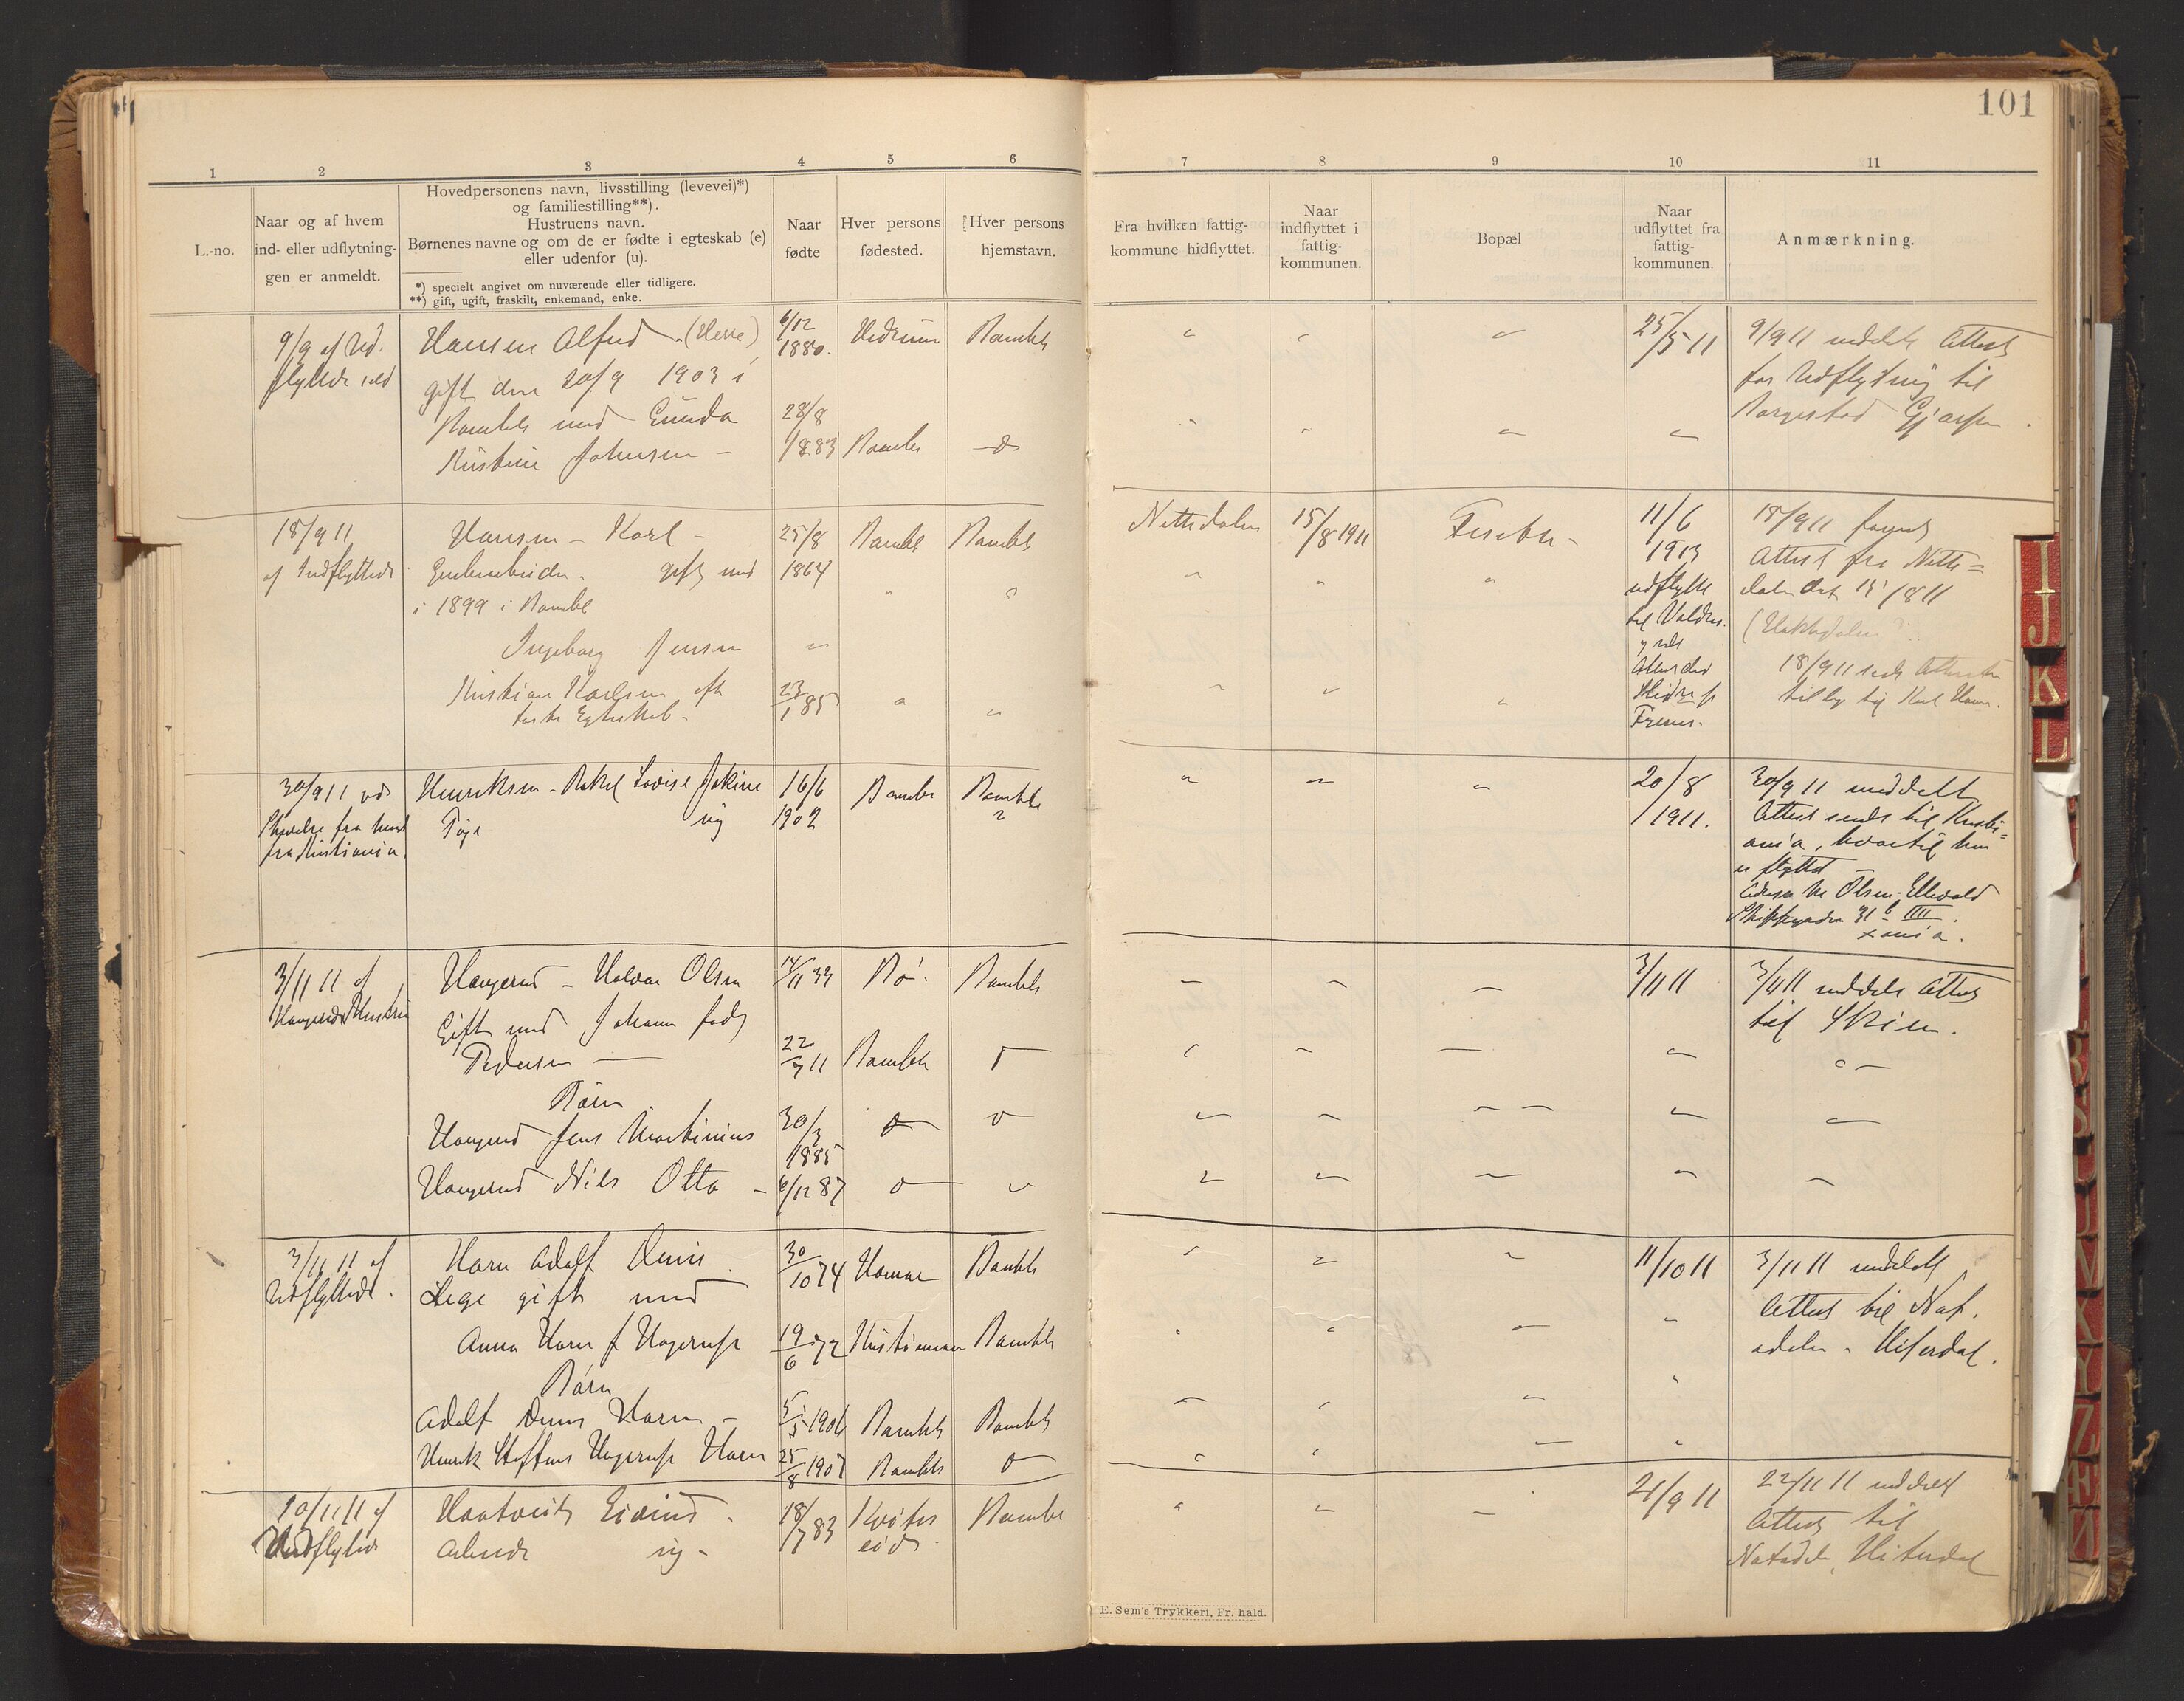 101
1 2 3 4 5 6 7 8 9 10 11
L.-no.
Naar og af hvem
ind- eller udflytnin-
gen er anmeldt.
Hovedpersonens navn, livsstilling (levevei)*)
og familiestilling**).
Hustruens navn.
Børnenes navne og om de er fødte i egteskab (e)
eller udenfor (u).
*) specielt angivet om nuværende eller tidligere.
**) gift, ugift, fraskilt, enkemand, enke.
Naar
fødte
Hver persons
fødested.
Hver persons
hjemstavn.
Fra hvilken fattig-
kommune hidflyttet.
Naar
indflyttet i
fattig-
kommunen.
Bopæl
Naar
udflyttet fra
fattig-
kommunen.
Anmærkning.
9/9 af Ud.
flyttede
Hansen Alfred (Herre)
gift den 20/9 1903 i
Bamble med Gunda
Kristine Johnsen –
6/12
1880.
28/8
1883
Hedrum
Bamble
Bamble
25/5 11
9/9 11 meddelt Attest
for Udflytning til
Borgestad Gjerpen.
18/9 11
af Indflyttede
Hansen – Karl –
gift med
i 1899 i Bamble
Ingeborg Jensen
Kristian Karlsen af
første Egteskab –
25/8
1864
23/1 85
Bamble
Bamble
Nittedalen
15/8 1911
11/6
1913
udflytte
til Valdres
18/9 11
Attest fra Nitte=
dalen dat 15/8 11
(Hakkedalen ?
18/9 11 sendt Attesten
tilbage til Karl Hans.
30/9 11 ved
Skrivelse fra
fra Kristiania.
Henriksen – Rakel Lovise Jokine
Pige ug
16/6
1902
Bamble
Bamble
20/8
1911.
30/9 11 meddelt
Attest sendt til Kristi=
ania, hvortil hun
er flyttet –
Olsen – Ellevold
31 b IIII.
xania.
3/11 11 af
Haugerud – Halvor Olsen
Gift med Johanne født
Pedersen —
Børn
Haugerud Jens Martinius
Haugerud Nils Otto –
14/11 33
22/7 11
30/3
1885
6/12 87
Bø.
Bamble
Bamble
3/11 11
3/11 11 meddelt Attest
til Skien.
3/11 11 af
Udflyttede.
Horn Adolf Denis
Læge gift med
Anna Horn f Hagerup
Børn
Adolf Denis Horn –
Henrik Steffens Hagerup Horn
30/10 74
19/6 72
5/5 1906
25/8 1907
Hamar
Kristiansand
Bamble
Bamble
Bamble
Bamble
Bamble
11/10 11
3/11 11 meddelt
Attest til Not.
odden – Hiterdal.
20/11 11 af
Udflyttede
Eivind.
Arbeider ug –
18/7 83
Kvites
eid.
Bamble
21/9 11
22/11 11 meddelt
Attest til
Notodden, Hiterdal
E. Sem's Trykkeri, Fr. hald.
I
J
K
L